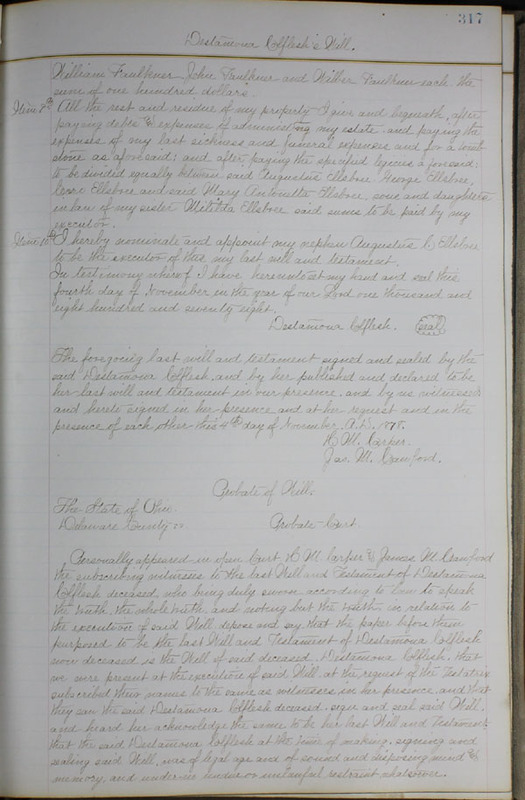 317
Destamona Clflesh's Will.
William Faulkner, John Faulkner and Wilber Faulkner each the
sum of one hundred dollars.
Item 9th All the rest and residue of my property I give and bequeath, after
paying debts & expenses of administering my estate and paying the
expenses of my last sickness and funeral expenses and for a tomb
stone as aforesaid; and after paying the specified legacies aforesaid;
to be divided equally between said Augustus Ellsbree, George Ellsbree,
Ellsbree and said Mary Antonette Ellsbree, sons and daughters
in law of my sister Matilda Ellsbree said sums to be paid by my
executor.
Item 10th I hereby nominate and appoint my nephew Augustus C Ellsbree
to be the executor of this my last will and testament.
In testimony whereof I have hereunto set my hand and seal this
fourth day of November in the year of our Lord one thousand and
eight hundred and seventy eight.
Destamona Clflesh. seal
The foregoing last will and testament signed and sealed by the
said Destamona Clflesh, and by her published and declared to be
her last will and testament in our presence, and by us witnessed
and hereto signed in her presence and at her request and in the
presence of each other this 4th day of November A.D. 1878.
H. M. Carper.
Jas. M. Crawford.
Probate of Will.
The State of Ohio.
Delaware County ss Probate Court.
Personally appeared in open Court H. M. Carper & James M. Crawford
the subscribing witnesses to the last Will and Testament of Destamona
Clflesh deceased, who being duly sworn according to law to speak
the truth the whole truth, and nothing but the truth, in relation to
the execution of said Will depose and say, that the paper before them
purported to be the last Will and Testament of Destamona Clflesh
now deceased is the Will of said deceased, Destamona Clflesh; that
we were present at the execution of said Will at the request of the Testatrix
subscribed their names to the same as witnesses in her presence, and that
they saw the said Destamona Clflesh deceased, sign and seal said Will,
and heard her acknowledge the same to be her last Will and Testament,
that the said Destamona Clflesh at the time of making, signing and
sealing said Will, was of legal age and of sound and disposing mind &
memory, and under no undue or unlawful restraint whatsoever.